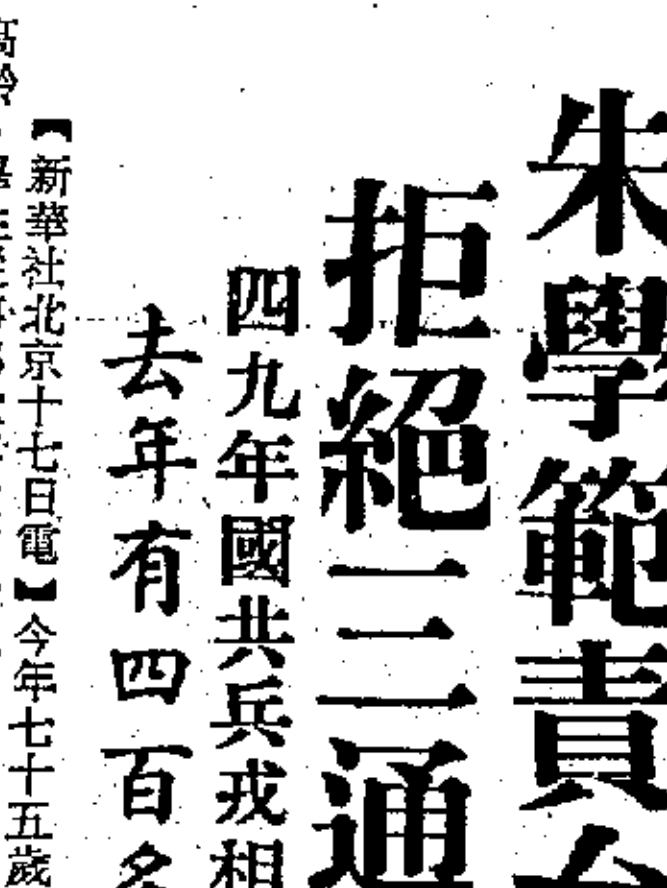 朱學範責
拒絕三通
四九年國共兵戎相
去年有四百多
【新華社北京十七日電】今年七十五歲
高齡